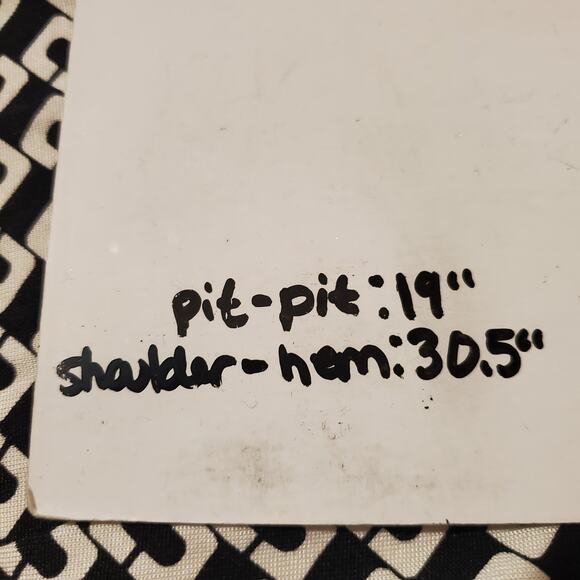 pit-pit:19"
shoulder-hem:30.5"